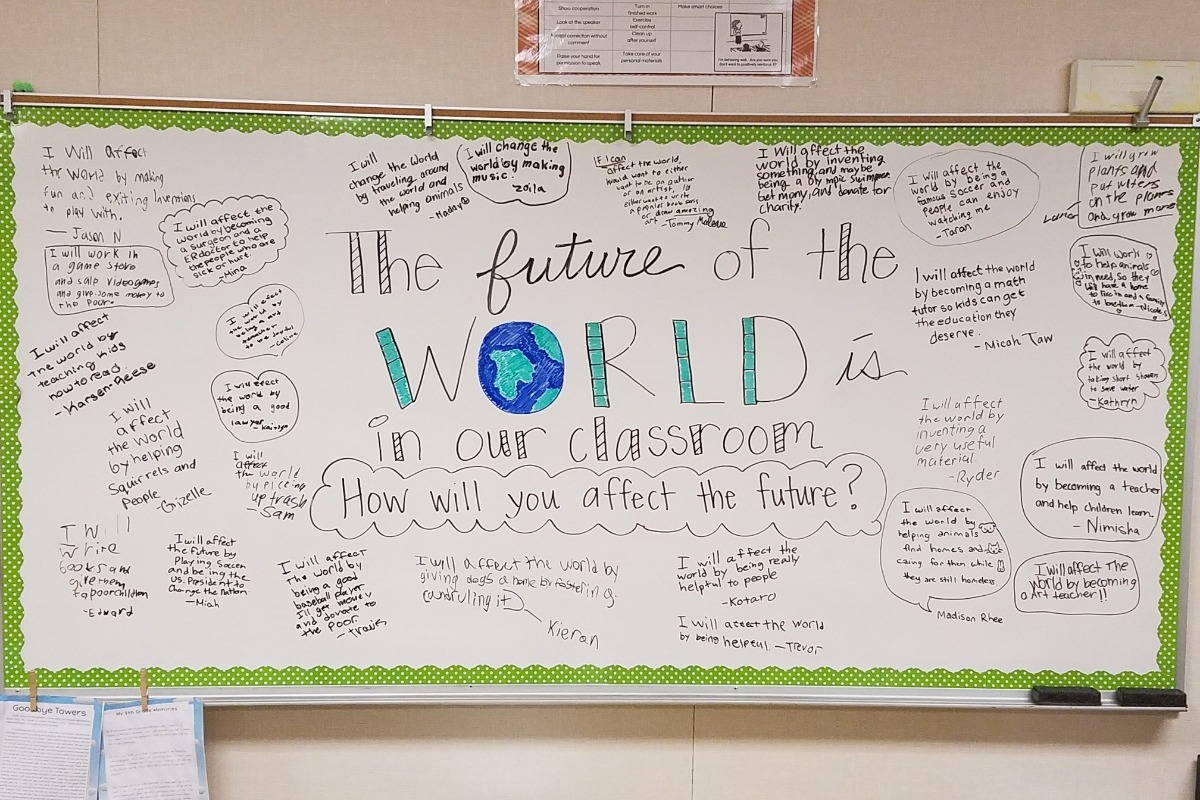 Show cooperation
Turn in
finished work
Make smart choices
Look at the speaker
Exercise
self-control
Accept correction without
comment
Clean up
after yourself
Raise your hand for
permission to speak
Take care of your
personal materials
I'm behaving well. Are you sure you
don't want to positively reinforce it?
The future of the
WORLD is
in our classroom
How will you affect the future?
I Will affect
the world by making
fun and exiting inventions
to play with.
— Jason N
I will work in
a game store
and salp videogames
and give some mokey to
the Poor.
I will affect the
world by becoming
a surgeon and a
ER doctor to help
the people who are
sick or hurt.
-Hina
I will efect
the world by
I will affect
the world by
teaching kids
how to read
-Karsen-Reese
I will efect
the world by
being a good
lawyer
- Kaitlyn
I will
affect
the world
by helping
Squirrels and
people
-Gizelle
I will
affect
the world
by piccing
up trash
- Sam
I will
write
books and
give them
to poor children
-Edward
I will affect
the future by
Playing Soccer
and being the
US. President to
Change the nation
-Miah
I will affect
The world by
being a good
baseball player
I'll get money
and donate to
the poor.
-travis
I will affect the world by
giving dogs a home by fostering
it
Kieran
I will affect the
world by being really
helpful to people
-Kotaro
I will affect the world
by being helpful. -Trevor
I will
change the world
by traveling around
the world and
helping animals
I will change the
world by making
music.
Zoila
If I can
affect the world,
I would want to either
want to be an author
or an artist, I'd
either want to write
or draw amazing
art -Tommy
I Will affect the
world by inventing
something, and maybe
being a olympic swimmer
get money, and donate for
charity.
I will affect the
world by being a
famous soccer and
people can enjoy
watching me
-Taran
I will grow
plants and
put
on the plants
and grow more
I will affect the world
by becoming a math
tutor so kids can get
the education they
deserve.
- Micah Taw
I will work
to help animals
in need, so they
will have a home
to live in and a family
to love them
I will affect
the world by
taking short showers
to save water
-Kathryn
I will affect
the world by
inventing a
very useful
material.
-Ryder
I will affect the world
by becoming a teacher
and help children learn.
- Nimisha
I will affect
the world by
helping animals
find homes and
caring for them while
they are still homeless
Madison Rhee
I will affect The
world by becoming
a Art teacher!!
Goodbye Towers
My 5th Grade Memories